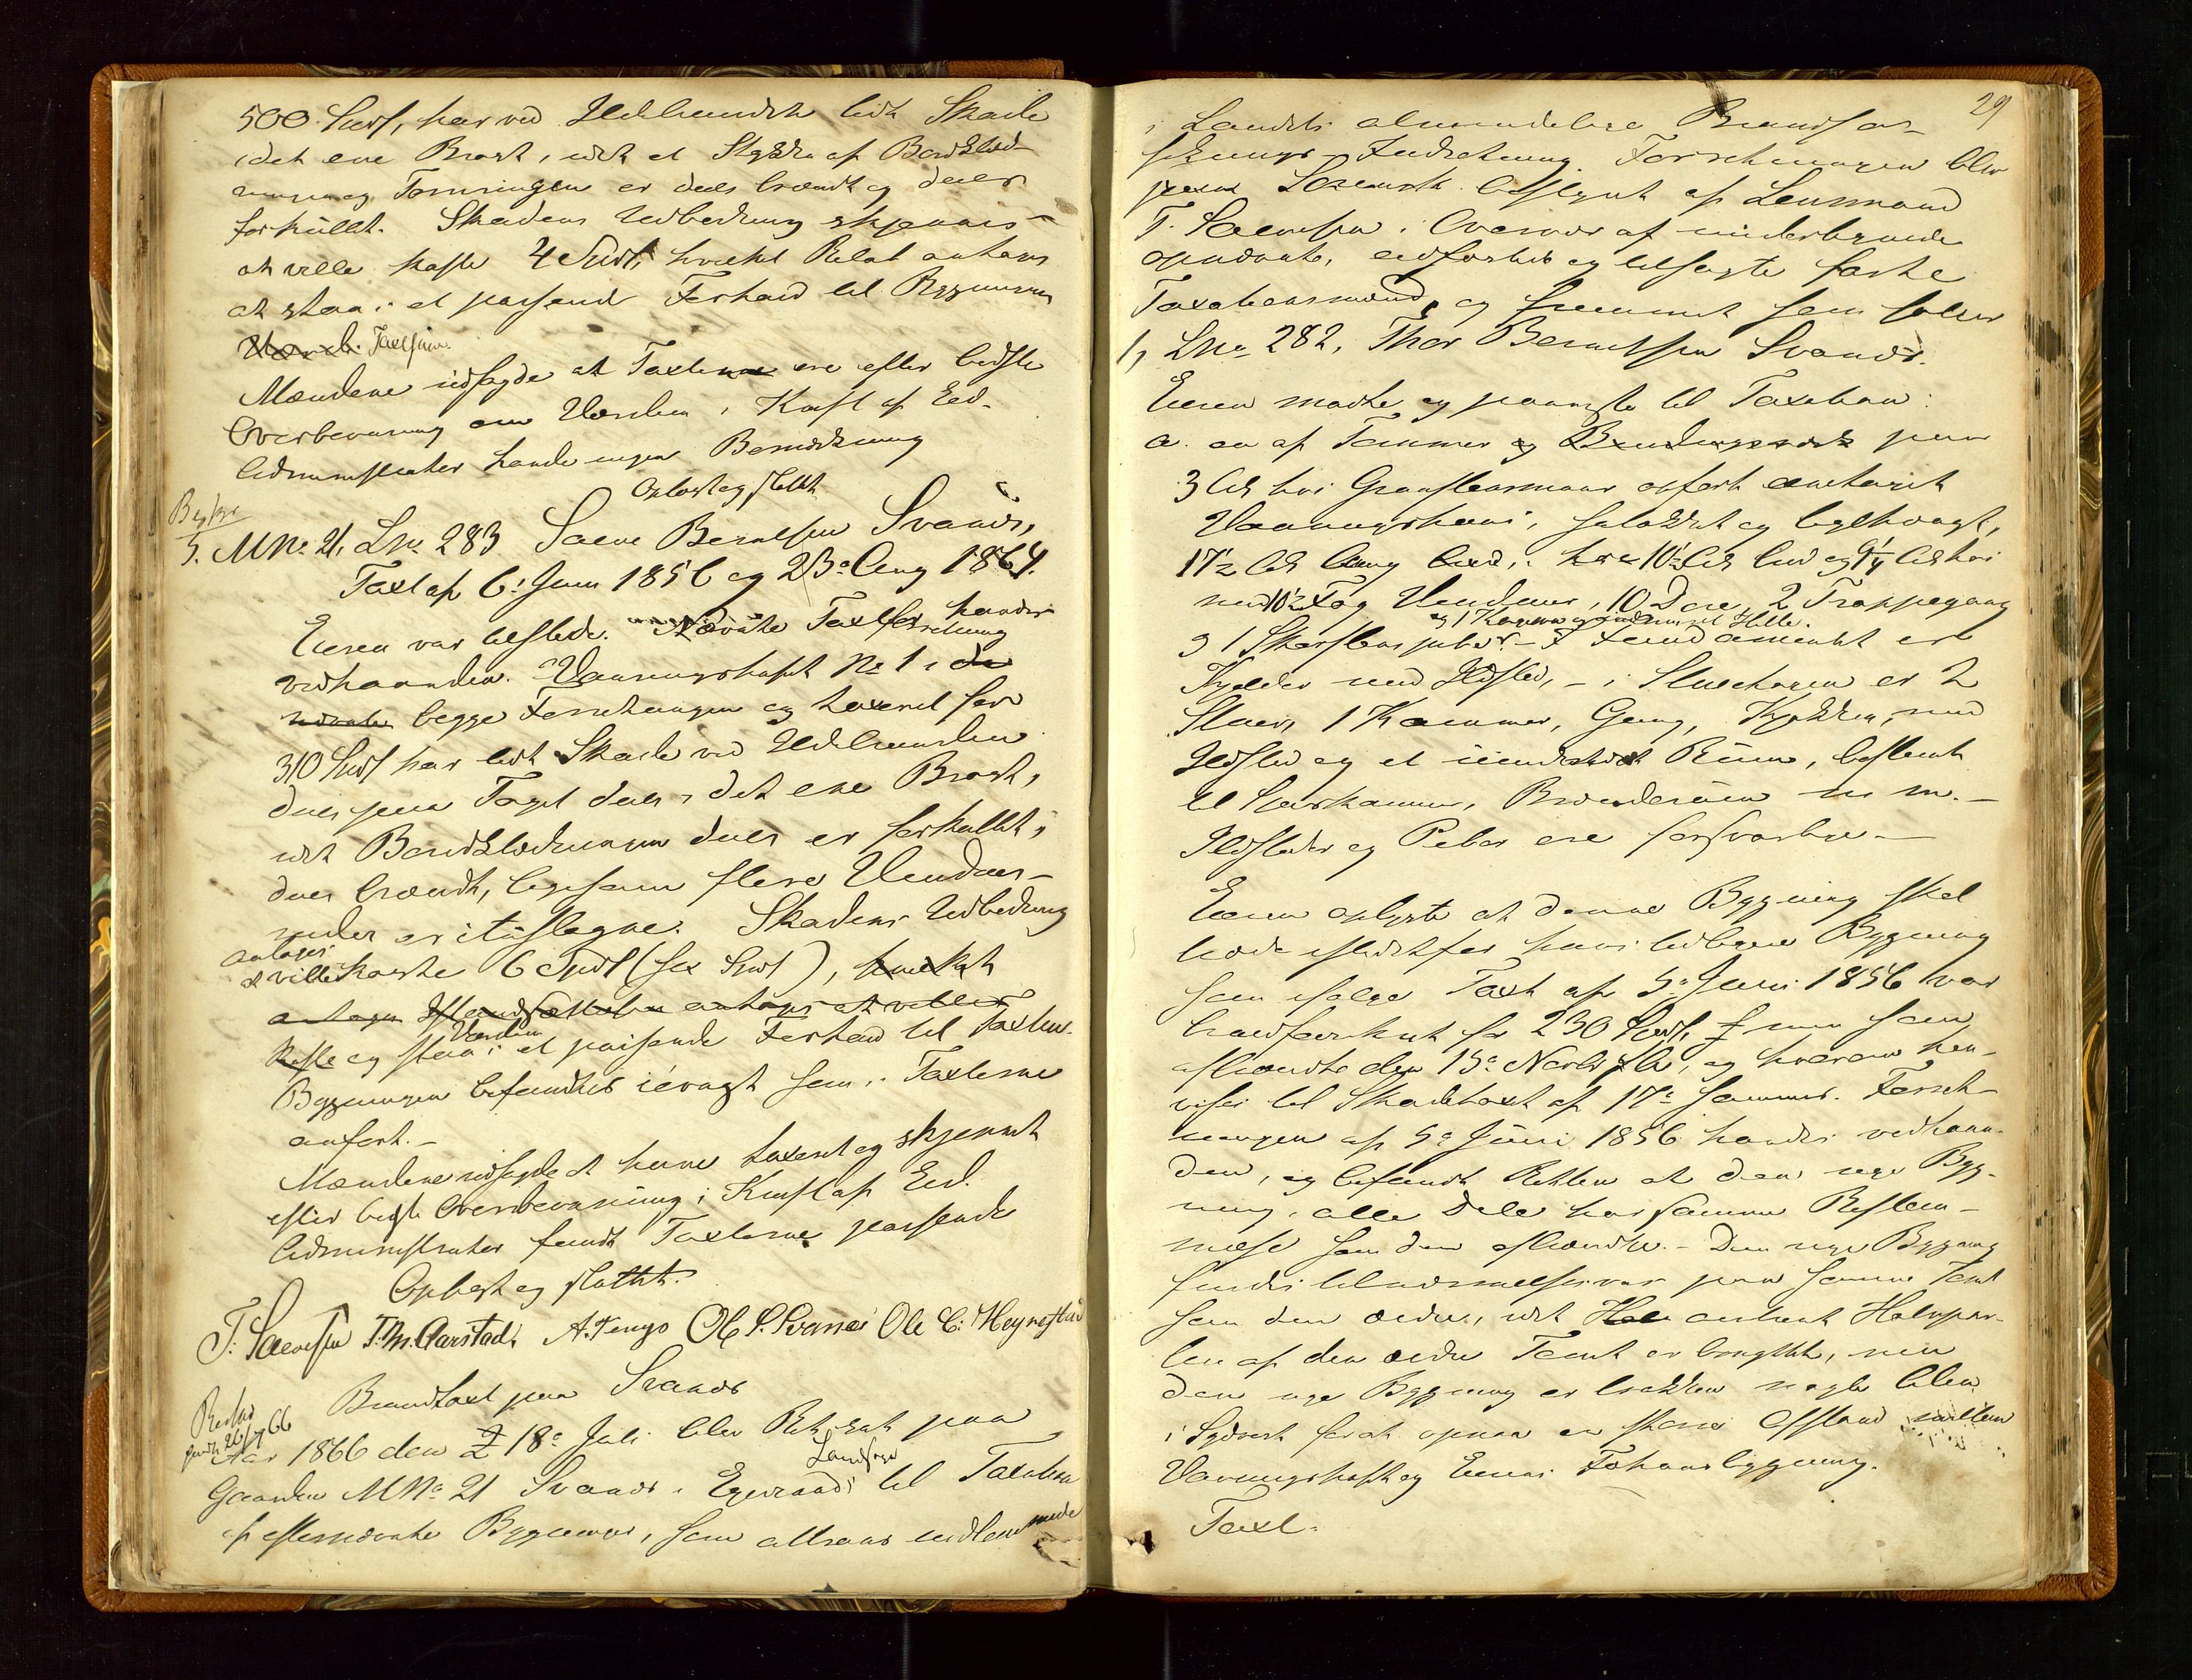 500 Spdl, har ved Ildebranden lidt Skade
i det ene Brost, idet et Stykke af Bordklæd-
ningen og Tømringen er deels brændt og deels
forkullet. Skadens Udbedring skjønnes
at ville koste 4 Spdl, hvilket Beløb antages
at staa i et passende Forhold til Bygningens
Værdi Taxtsum.
Mændene udsagde at Taxterne ere efter bedste
Overbeviisning om Værdien i Kraft af Eed.
Administrator havde ingen Bemærkning
Oplæst og sluttet
5. MNo 21, LNo 283 Salve Berntsen Svanes,
Taxt af 6' Juni 1856 og 23de Aug 1864.
Eieren var tilstede. Nævnte Taxtforretning havdes
vedhaanden. Vaaningshuset No 1 i de
nævnte begge Forretninger og taxeret for
310 Spdl har lidt Skade ved Ildebranden
deels paa Taget deels i det ene Brost,
idet Bordklædningen deels er forkullet,
deels brændt, ligesom flere Vindues-
ruder er ituslagne. Skadens Udbedring
antages
at ville koste 6 Spdl (sex Spdl), hvilket
antages
Koste og staa i et passende Forhold til Taxten.
Værdien
Bygningen befandtes iøvrigt som i Taxterne
anført. –
Mændene udsagde at have taxeret og skjønnet
efter bedste Overbeviisning i Kraft af Eed.
Administrator fandt Taxterne passende
Oplæst og sluttet.
T. Salvesen T. M. Aarstad, A. Tengs Ole S. Svanes Ole C: Høgnestad
Brandtaxt paa Svanes
26/7 66
Aar 1866 den 18de Juli blev Ret sat paa
Gaarden MNo 21 Svanes i Egersunds Landsogn til Taxation
af efternævnte Bygninger, som attraaes indlemmede
29
i Landets almindelige Brandfor-
sikrings-Indretning. Forretningen blev
T. Salvesen i Overvær af underskrevne
opnævnte, eedfæstede og tilsagte faste
Taxationsmænd, og fremmet som følger
1, LNo 282, Thor Berntsen Svanes.
Eieren mødte og paaviste til Taxation:
a. en af Tømmer og Bindingsværk paa
3 Al: høi Graasteensmuur opført
Vaaningshuus, teglhængt,
17½ Al: lang 10½ Al: bred og 4¼ Al: høi
med 10½ Fag Vinduer, 10 Døre, 2 Trappegang
og 1 Skorsteenspibe. – I Fundamentet er
Kjelder med Ildsted, – i Stueetagen er 2
Stuer, 1 Kammer, Gang, Kjøkken, med
Ildsted og et uindredet Rum, bestemt
til Spiskammer, m. m. –
Ildsteder og Piber ere forsvarlige –
Eieren oplyste at denne Bygning skal
træde istedetfor hans tidligere Bygning
som ifølge Taxt af 5te Juni 1856 var
brandforsikret for 230 Spdl, men som
afbrændte den 15de Novbr f. A., og hvorom hen-
vises til Skadetaxt af 17de samme. Forret-
ningen af 5te Juni 1856 havdes vedhaan-
den, og befandt Retten at den nye Byg-
ning i alle Dele har samme Bestem-
melse som den afbrændte. – Den nye Bygning
findes tilnærmelsesviis paa samme Tomt
som den ældre, idet omtrent Halvpar-
ten af den ældre Tomt er benyttet, men
den nye Bygning er trukken nogle Alen
i Sydvest for at opnaa en større Afstand mellem
Vaaningshuset og Eierens bygning.
Taxt.